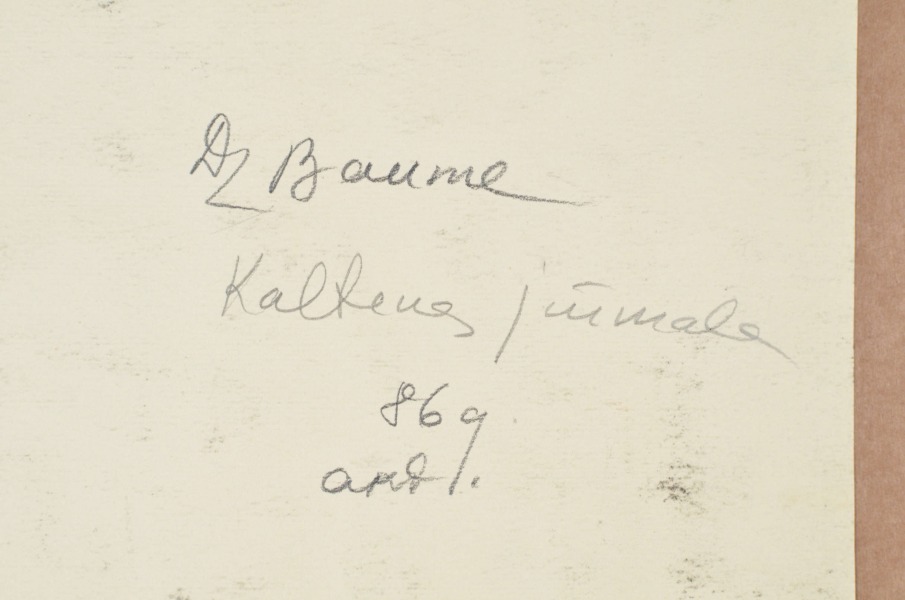 Dz Baume
Kaltenes jūrmala
86 g